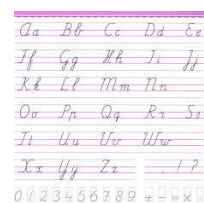 Aa Bb Cc Dd Ee
Ff Gg Hh Ii Jj
Kk Ll Mm Nn
Oo Pp Qq Rr Ss
Tt Uu Vv Ww
Xx Yy Zz . , ! ?
0 1 2 3 4 5 6 7 8 9 + - = ×